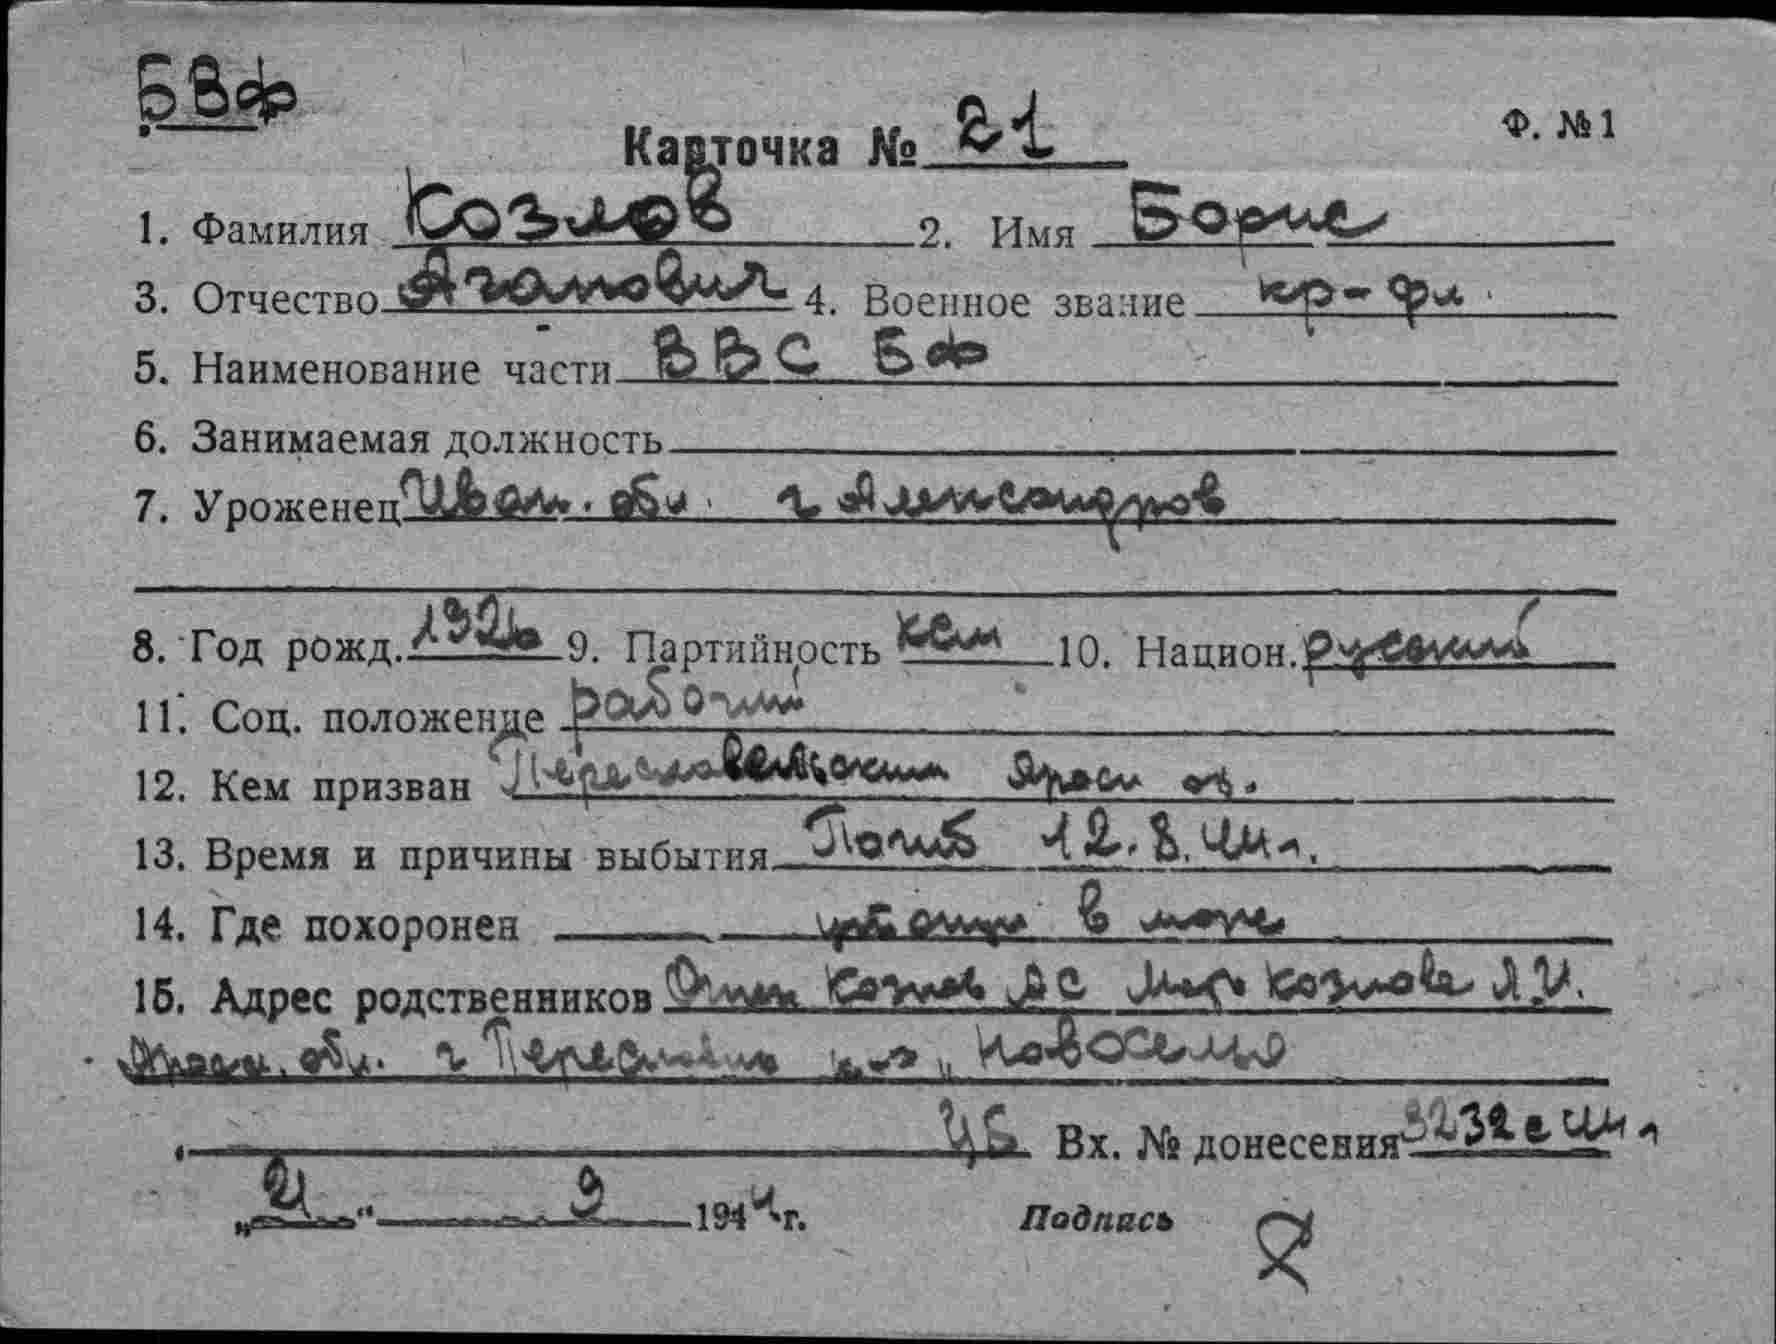 БВФ
Карточка № 21 Ф. №1
1. Фамилия Козлов 2. Имя Борис
3. Отчество 4. Военное звание кр-фл.
5. Наименование части ВВС БФ
6. Занимаемая должность
7. Уроженец Иван. обл. г Александров
8. Год рожд. 9. Партийность 10. Национ. русский
11. Соц. положение рабочий
12. Кем призван Яросл об.
13. Время и причины выбытия Погиб 12.8.44 г.
14. Где похоронен в море
15. Адрес родственников Козлов Козлова
обл. г Новоселье
Вх. № донесения 3232 в 44 г
„21“ 9 1944 г. Подпись